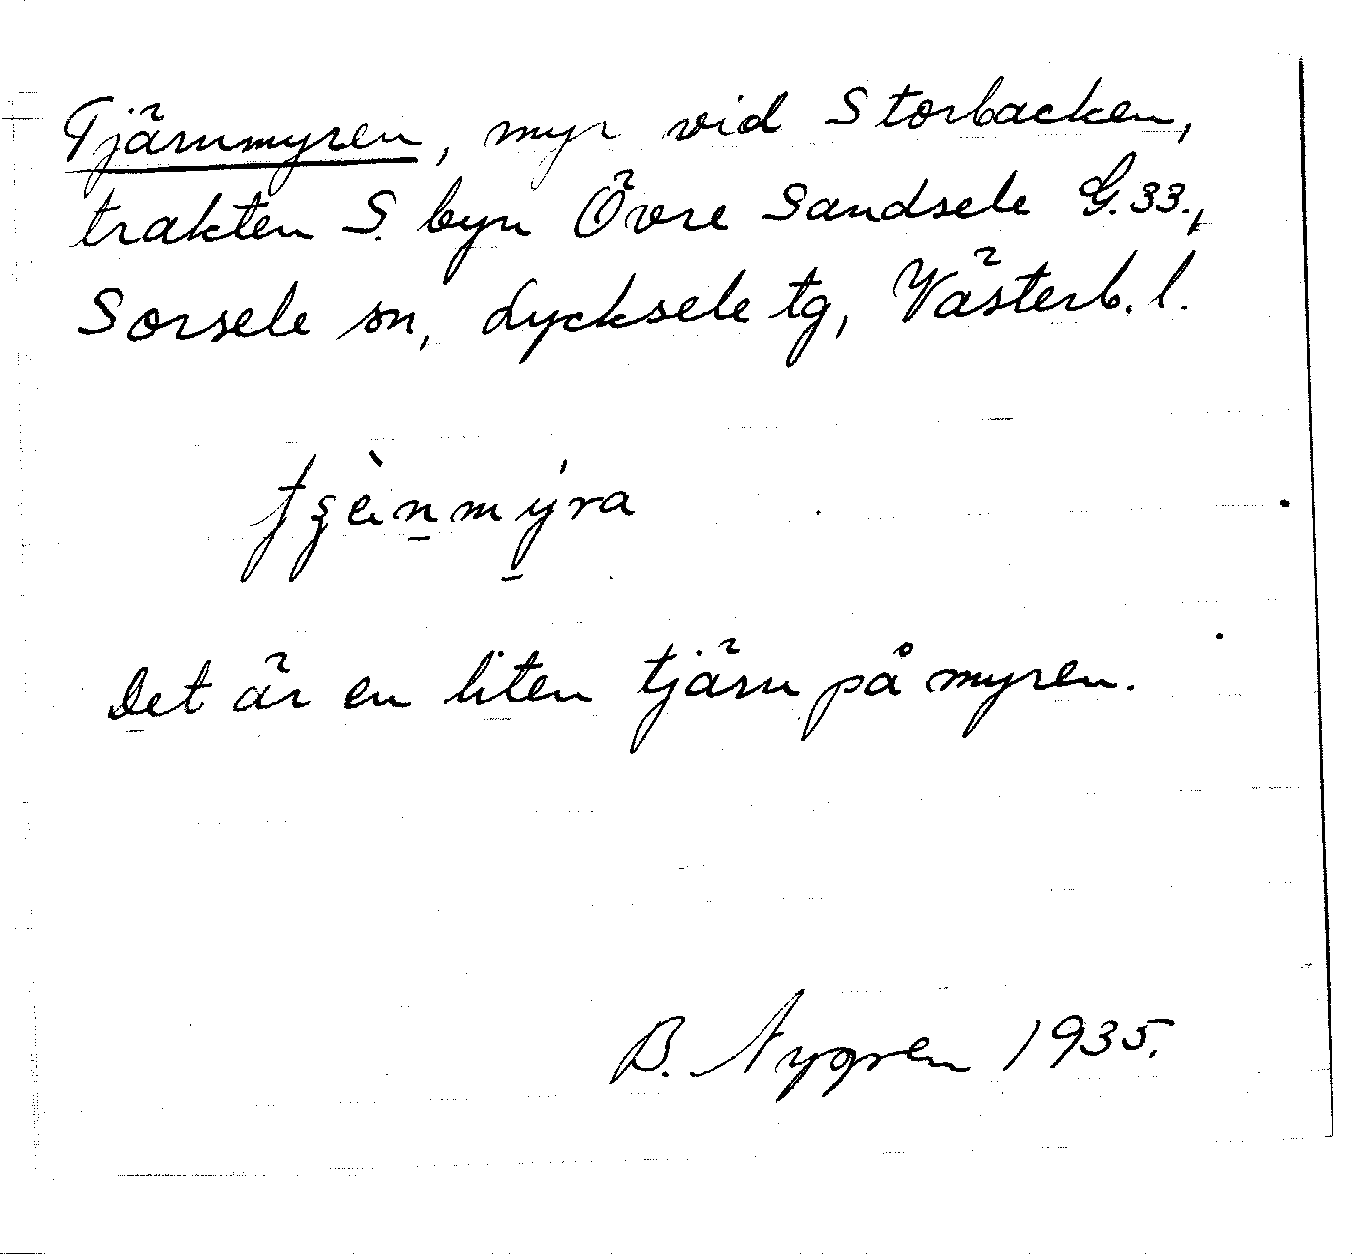 Tjärnmyren, myr vid Storbacken,
trakten S. byn Övre Sandsele G.33.,
Sorsele sn, Lycksele tg, Västerb. l.
Det är en liten tjärn på myren.
B. Nygren 1935.